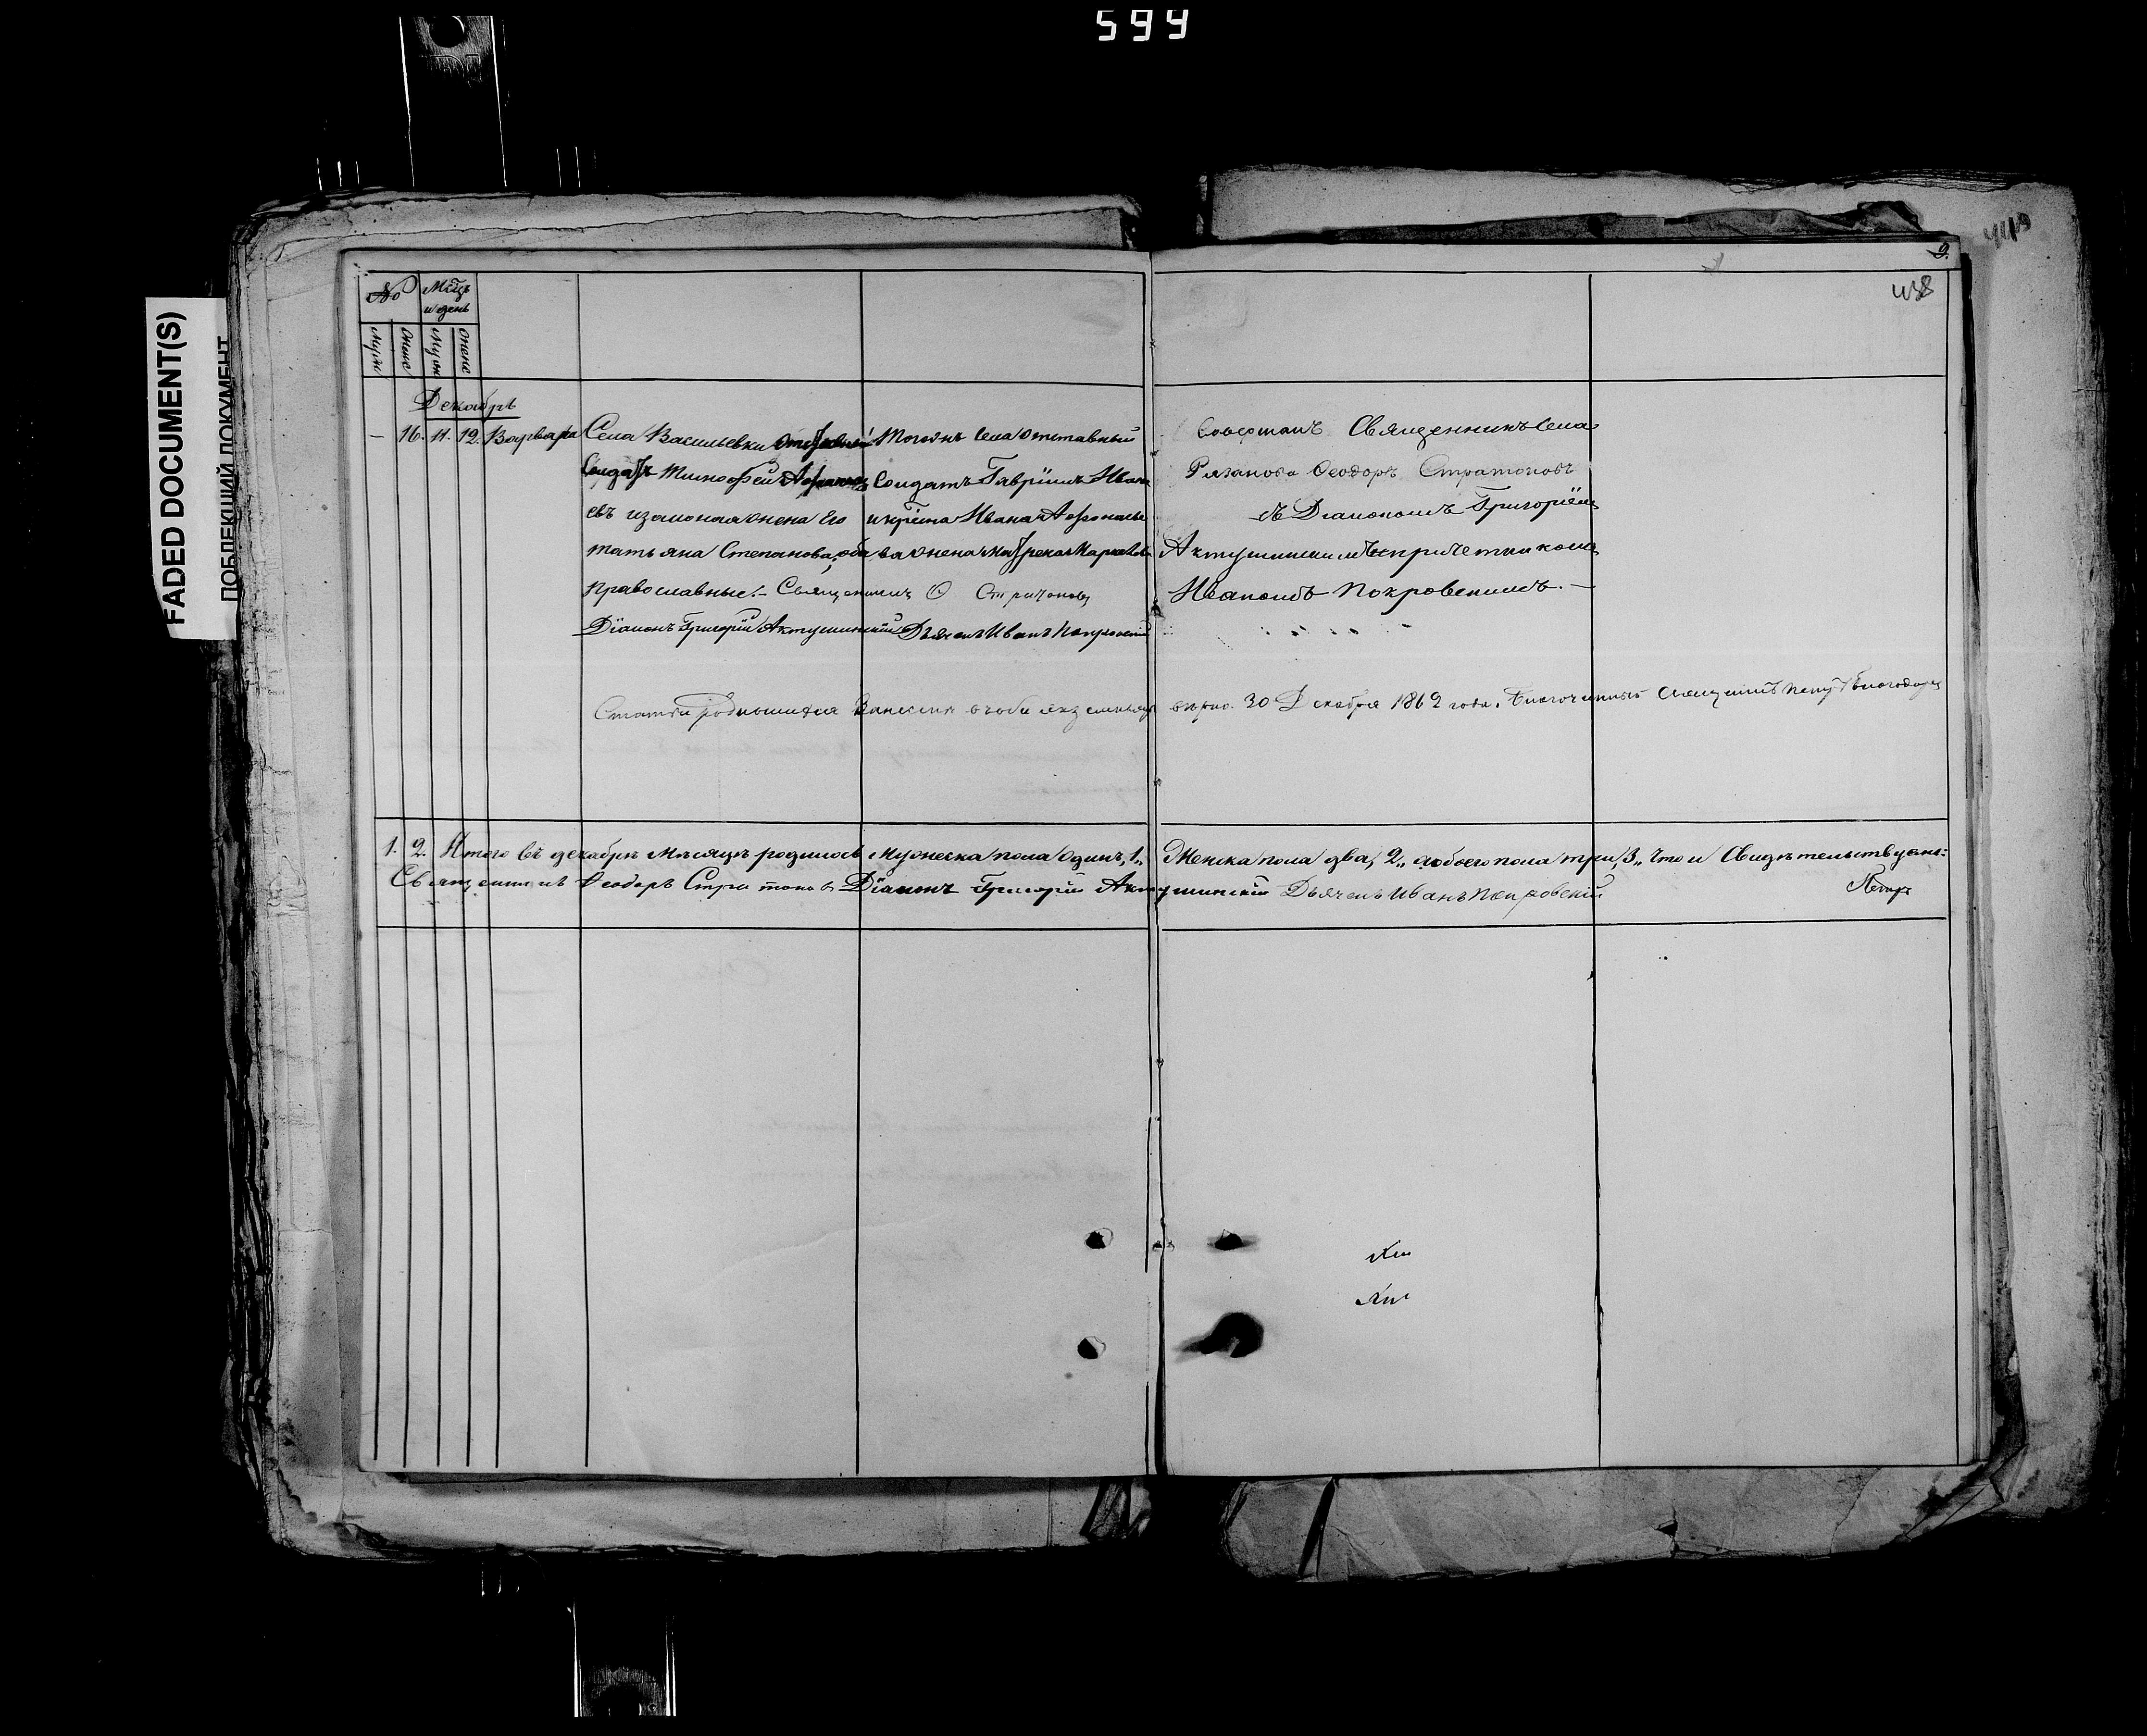 599
FADED DOCUMENT(S)
ПОБЛЕКШИЙ ДОКУМЕНТ
449
9.
438
№
Мѣцъ
и день
Муж
Женс
Муж
Женс
Декабрь
— 16. 11. 12. Варвара
Села Васильевки отставный
Солдатъ Тимофей
евъ изаконная жена его
татьяна Степанова, оба
православные.— Священникъ Ѳ Стратоновъ
Діаконъ Григорій Актушинскій Дьячекъ Иванъ Покровскій
Тогожъ Села отставный
Солдатъ Гаврiилъ Иван
икрѣпка Ивана Афонасье
ва жена Матрена Маркова
Совершалъ Священникъ Села
Рязанова Ѳеодоръ Стратоновъ
съ Діакономъ Григоріем
Актушинскимъ и причетником
Иваномъ Покровскимъ.—
Статьи родившихся вѣрно. 30 Декабря 1862 года. Благочинный Священникъ
1. 2. Итого въ декабрѣ мѣсяцѣ родилось Мужеска пола Одинъ, 1., Женска пола два, 2., обоего пола три, 3., Что и Свидѣтельствуемъ:
Священникъ Ѳеодоръ Стратоновъ Діаконъ Григорій Актушинскій Дьячекъ Иванъ Покровскій
Петръ